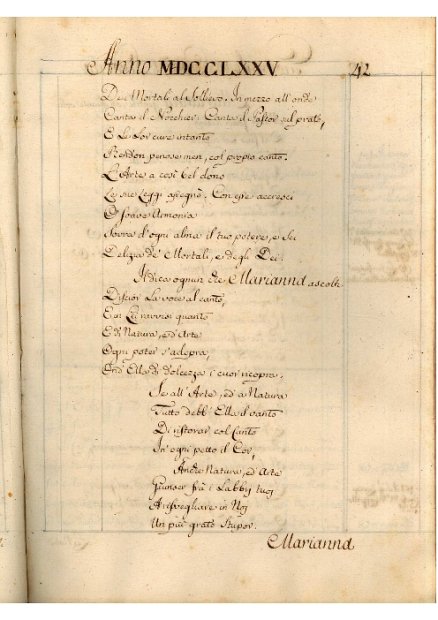 Anno MDCCLXXV 42
De' Mortali al Sollievo. In mezzo all' onde
Canta il Nocchier: Canta il Pastor sul prato,
E le Lor cure intanto
Rendon penose men, col proprio canto.
L'Arte a così bel dono
Le sue Leggi assegnò. Con esse accresci
O soave Armonia
Sovra d'ogni alma il tuo potere, e sei
Delizia de' Mortali, e degli Dei.
Il dica ognun che Marianna ascolti
Discior la voce al canto,
E in Lei ravvisi quanto
E di Natura, ed' Arte
Ogni poter s'adopra,
Ond' Ella di dolcezza i cuor ricopra.
Se all' Arte, ed' a Natura
Tutto debb' Ella il vanto
Di ristorar col Canto
In' ogni petto il Cor,
Anche Natura, ed' Arte
Giunser frà i Labbij tuoj
A risvegliare in Noj
Un più grato Stupor.
Marianna